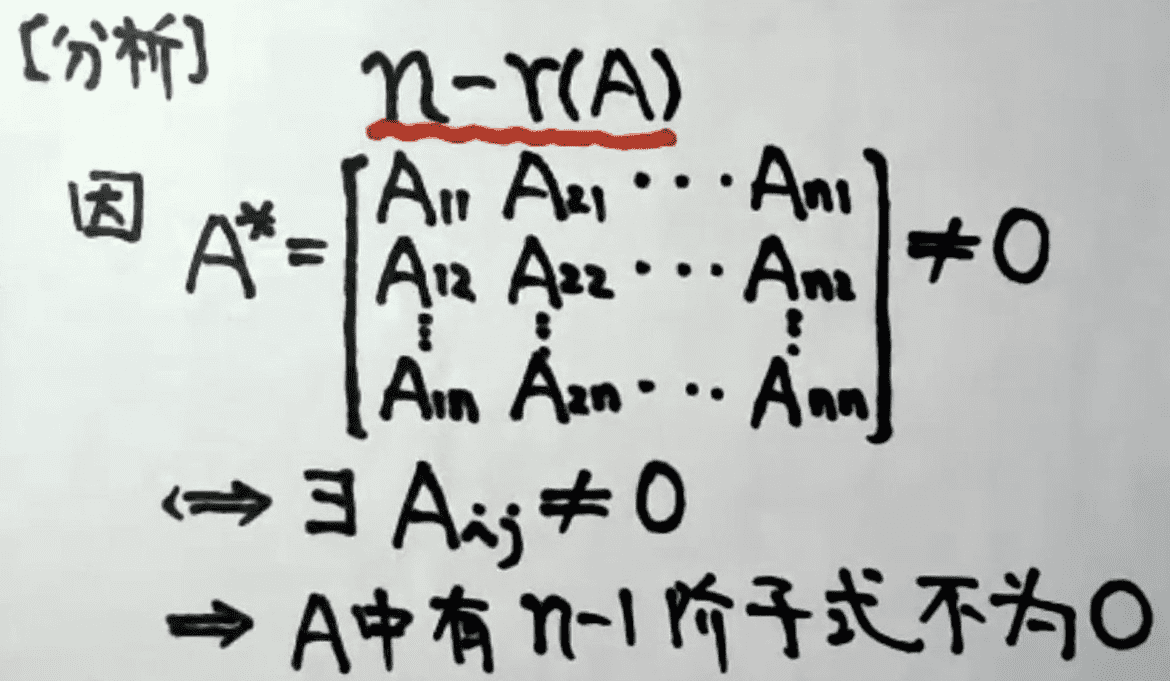 [分析]
n-r(A)
因 A*=[A₁₁ A₂₁ ··· Aₙ₁
A₁₂ A₂₂ ··· Aₙ₂
⋮ ⋮ ⋮
A₁ₙ A₂ₙ ··· Aₙₙ]≠0
⇔ ∃ Aᵢⱼ≠0
⇒ A中有n-1阶子式不为0